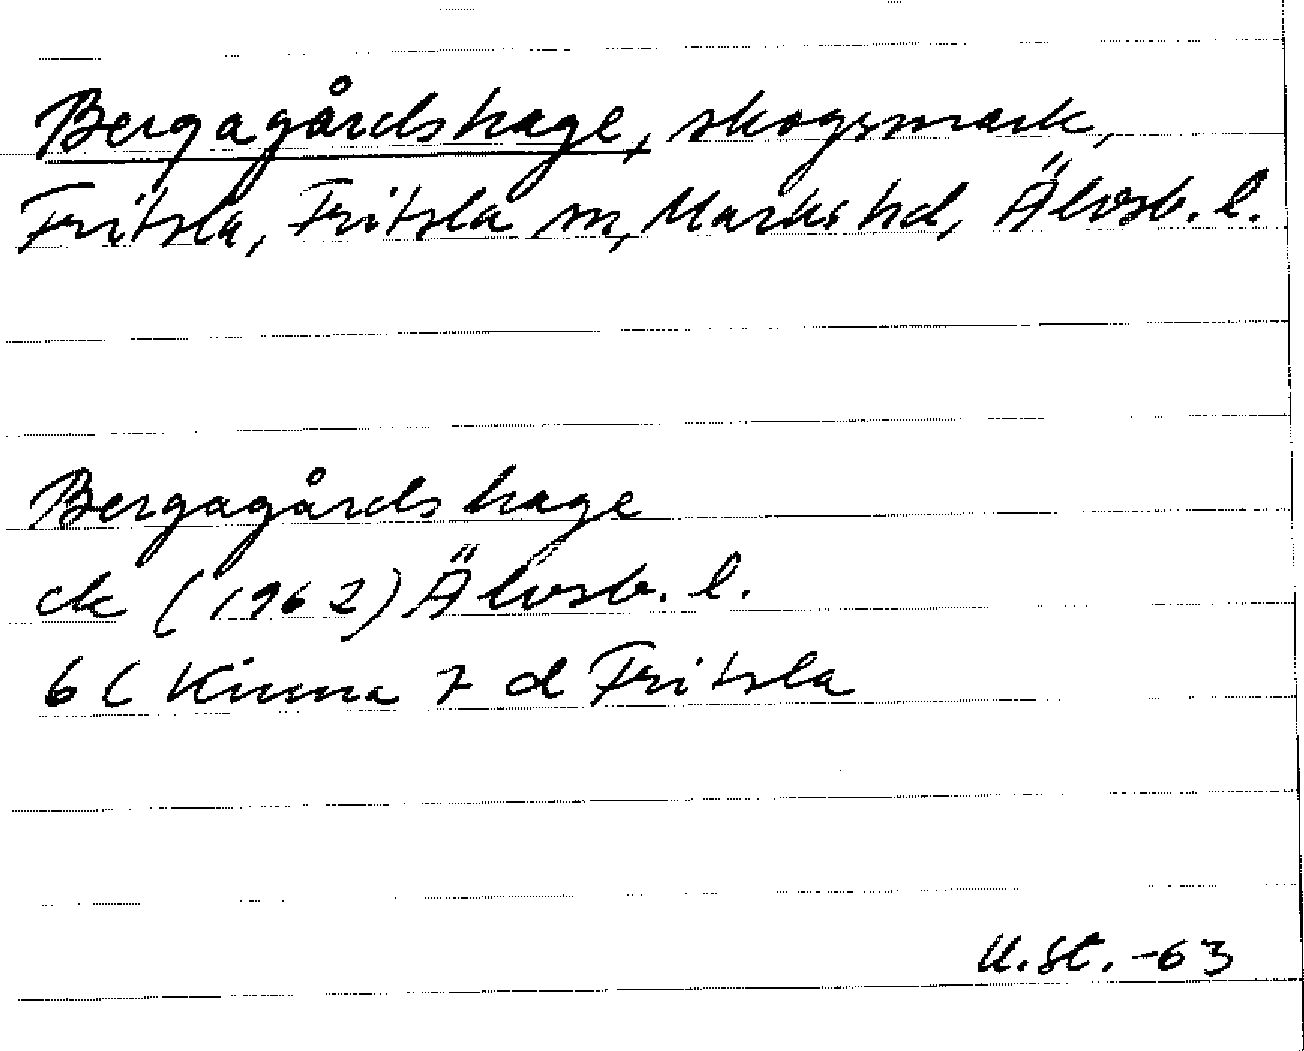 Bergagårdshage, skogsmark,
Fritsla, Fritsla sn, Marks hd, Älvsb. l.
Bergagårdshage
ek (1962) Älvsb. l.
6 C Kinna 7 d Fritsla
U.St. -63